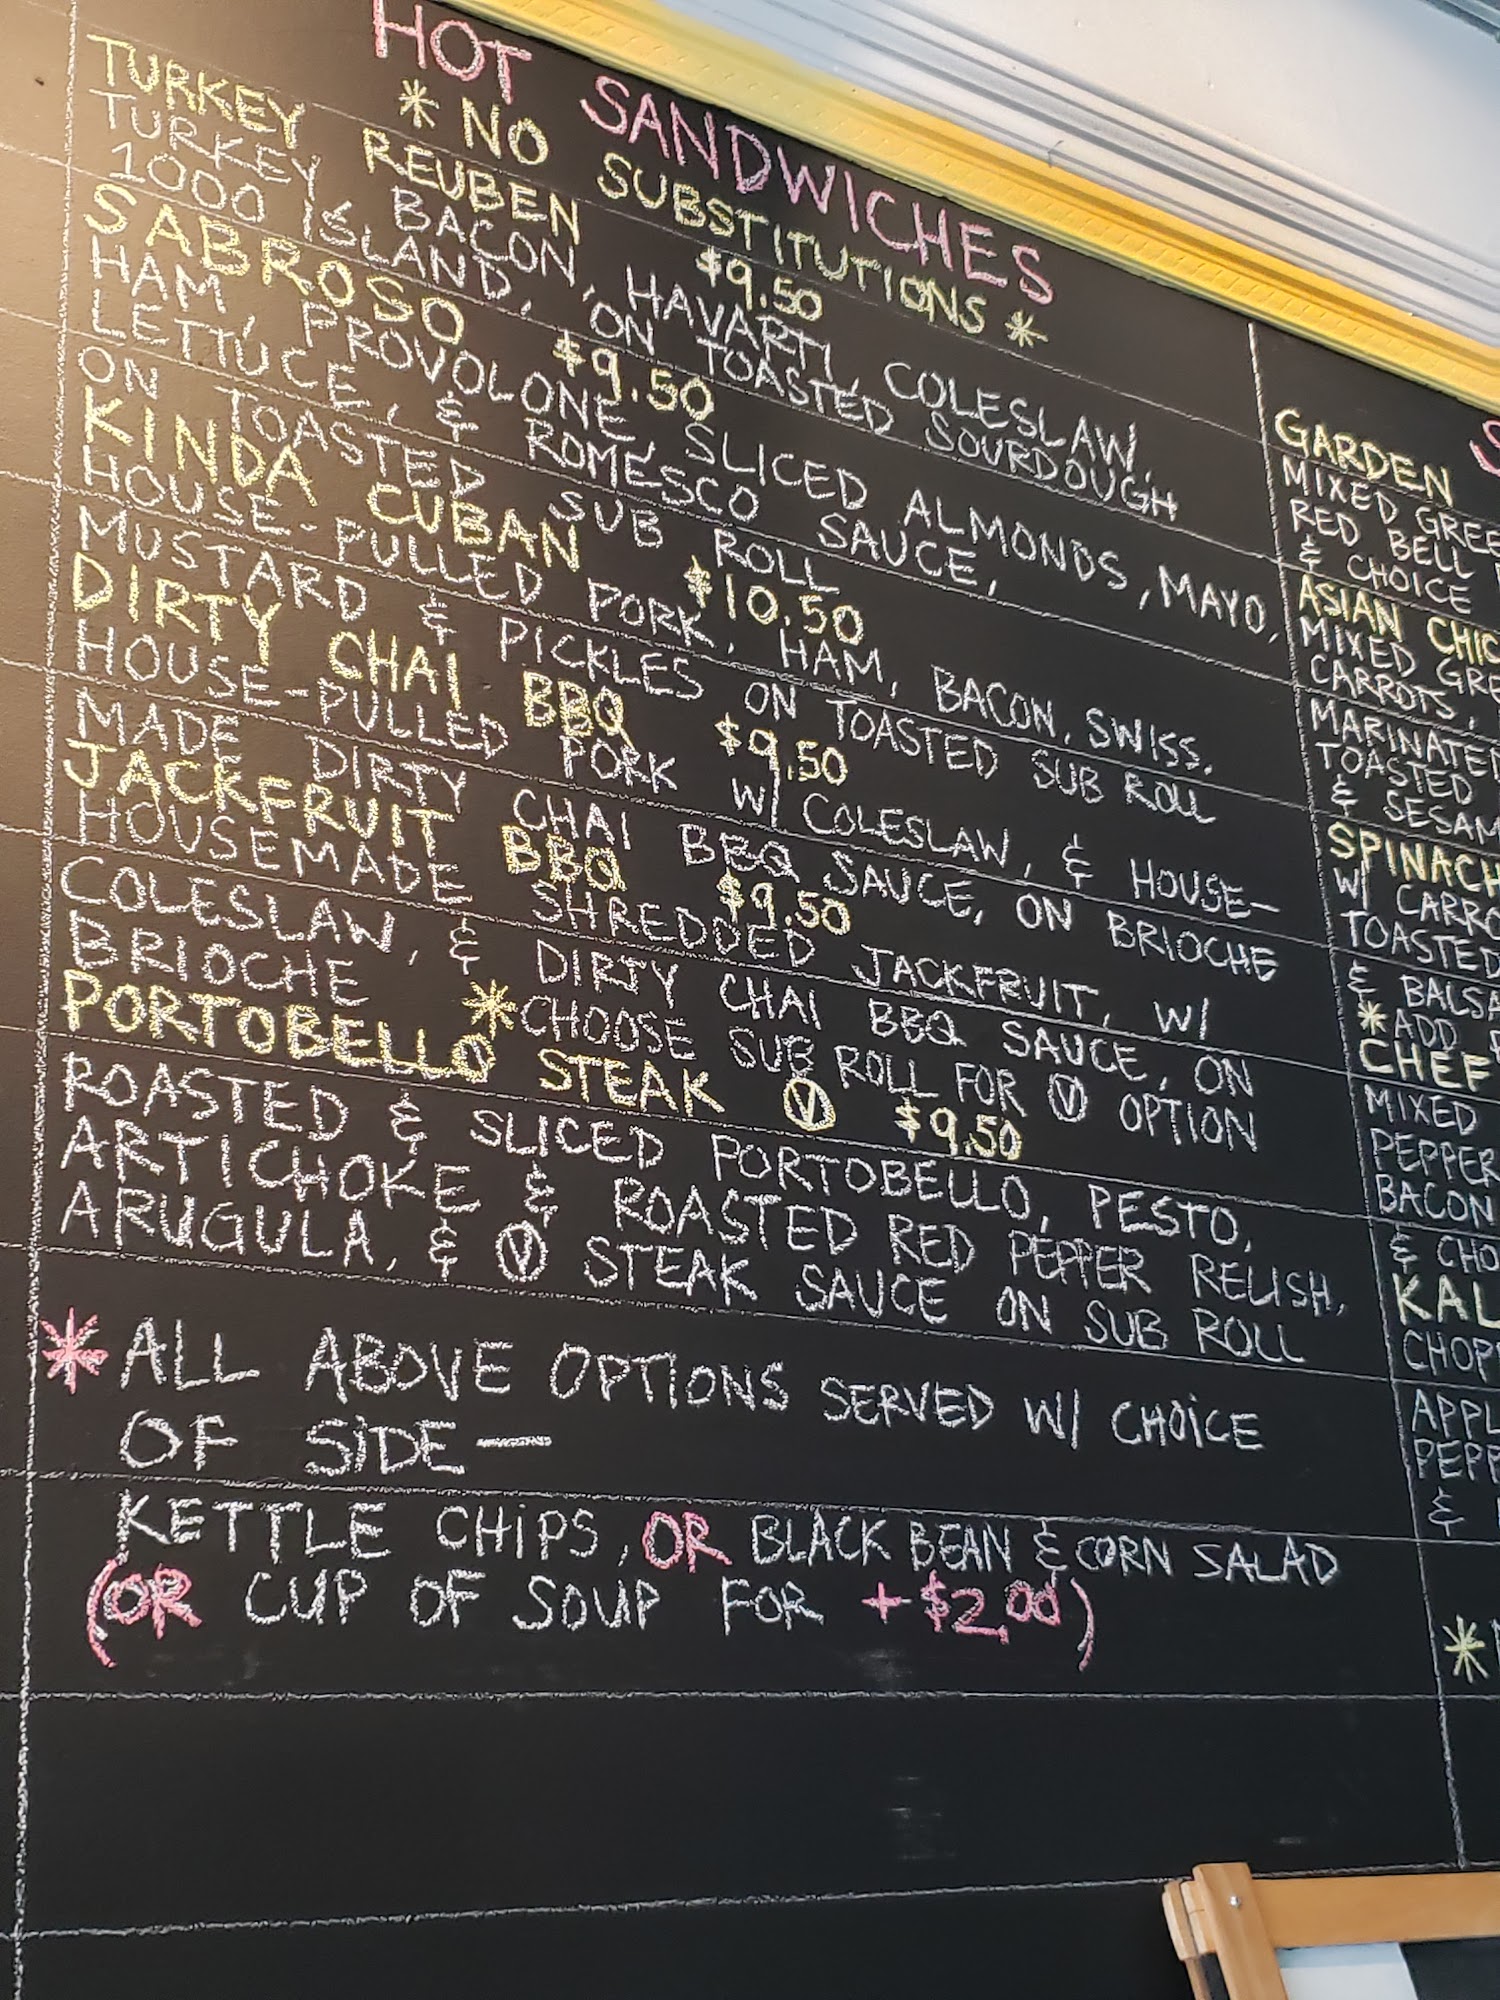 HOT SANDWICHES
* NO SUBSTITUTIONS *
TURKEY REUBEN $9.50
TURKEY, BACON, HAVARTI, COLESLAW,
1000 ISLAND, ON TOASTED SOURDOUGH
SABROSO $9.50
HAM, PROVOLONE, SLICED ALMONDS, MAYO,
LETTUCE, & ROMESCO SAUCE,
ON TOASTED SUB ROLL
KINDA CUBAN $10.50
HOUSE-PULLED PORK, HAM, BACON, SWISS,
MUSTARD & PICKLES ON TOASTED SUB ROLL
DIRTY CHAI BBQ $9.50
HOUSE-PULLED PORK W/ COLESLAW, & HOUSE-
MADE DIRTY CHAI BBQ SAUCE, ON BRIOCHE
JACKFRUIT BBQ $9.50
HOUSEMADE SHREDDED JACKFRUIT, W/
COLESLAW, & DIRTY CHAI BBQ SAUCE, ON
BRIOCHE *CHOOSE SUB ROLL FOR Ⓥ OPTION
PORTOBELLO STEAK Ⓥ $9.50
ROASTED & SLICED PORTOBELLO, PESTO,
ARTICHOKE & ROASTED RED PEPPER RELISH,
ARUGULA, & Ⓥ STEAK SAUCE ON SUB ROLL
* ALL ABOVE OPTIONS SERVED W/ CHOICE
OF SIDE—
KETTLE CHIPS, OR BLACK BEAN & CORN SALAD
(OR CUP OF SOUP FOR +$2.00)
GARDEN
MIXED GREE
RED BELL
& CHOICE
ASIAN CHIC
MIXED GRE
CARROTS,
MARINATED
TOASTED
& SESAM
SPINACH
W/ CARRO
TOASTED
& BALSA
*ADD
CHEF
MIXED
PEPPER
BACON
& CHO
KAL
CHOP
APPL
PEPP
&
*